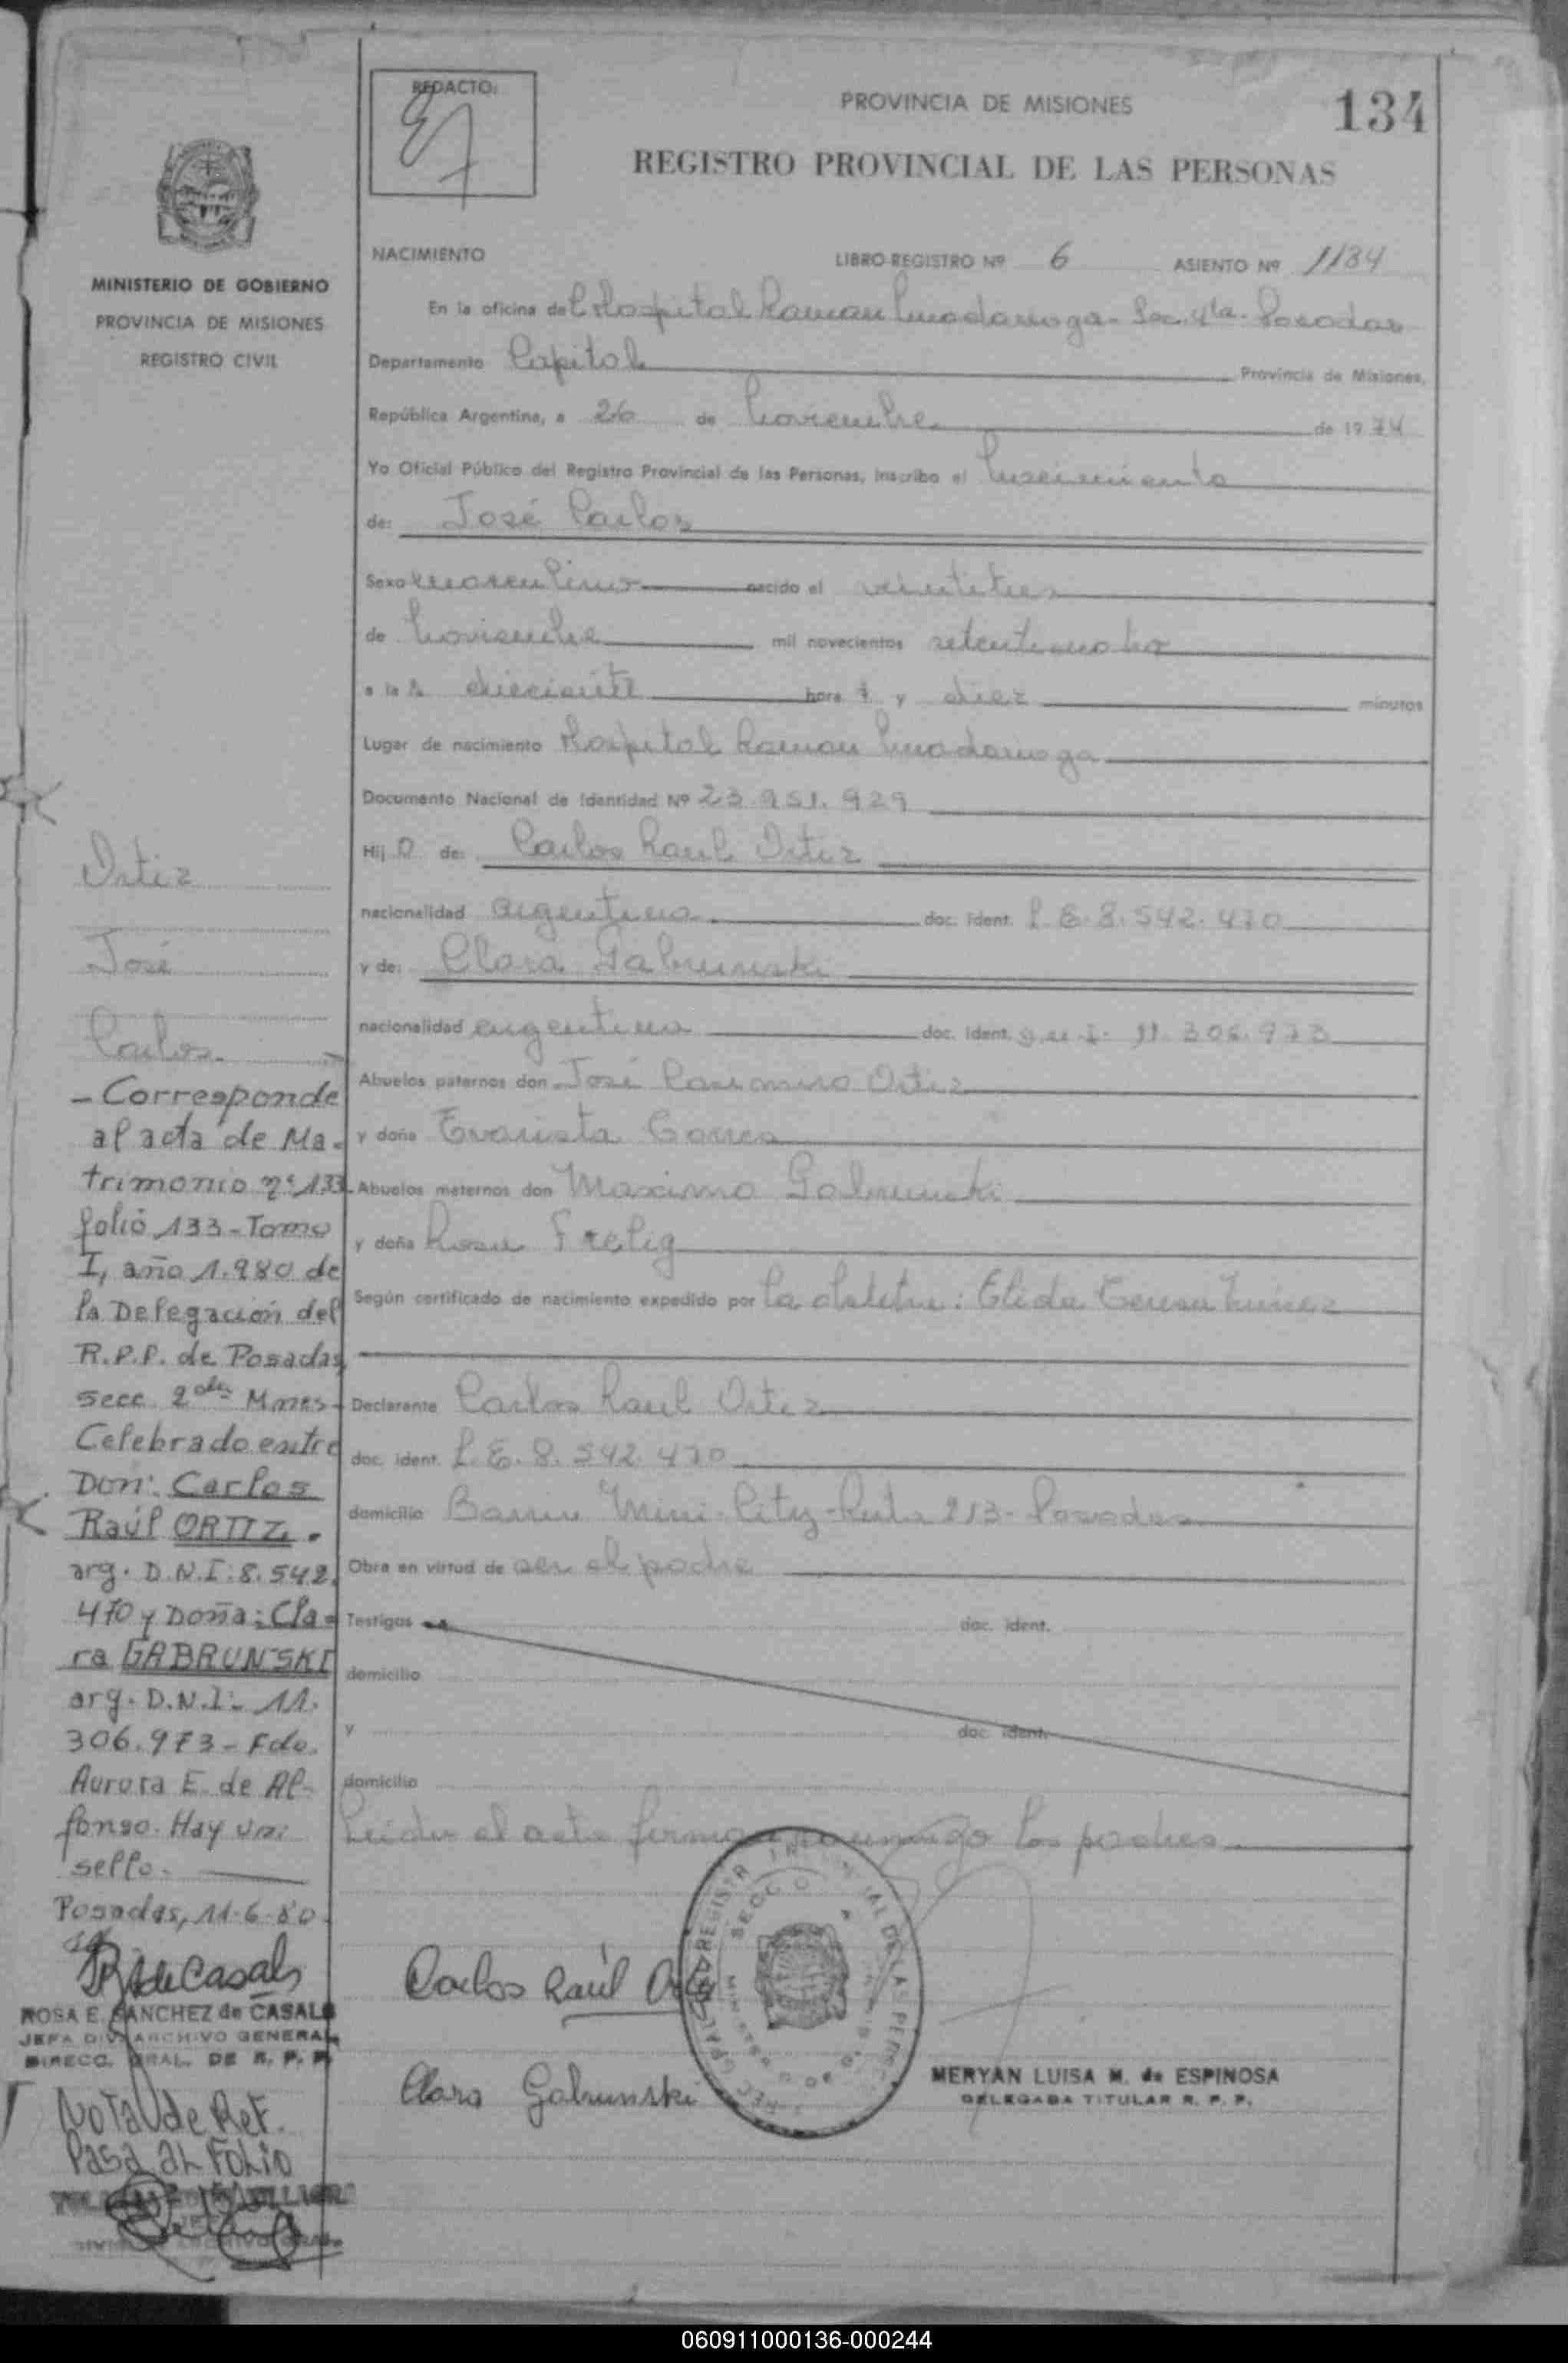 REDACTO:
PROVINCIA DE MISIONES
134
REGISTRO PROVINCIAL DE LAS PERSONAS
MINISTERIO DE GOBIERNO
PROVINCIA DE MISIONES
REGISTRO CIVIL
NACIMIENTO LIBRO-REGISTRO Nº 6 ASIENTO Nº 1134
En la oficina del Hospital Ramon Madariaga - Sec. 4ta. Posadas
Departamento Capital Provincia de Misiones,
República Argentina, a 26 de Noviembre de 1974
Yo Oficial Público del Registro Provincial de las Personas, inscribo el Nacimiento
de: José Carlos
Sexo masculino nacido el veintitres
de Noviembre mil novecientos setenticuatro
a las diecisiete hora s y diez minutos
Lugar de nacimiento Hospital Ramon Madariaga
Documento Nacional de Identidad Nº 23.951.929
Hij o de: Carlos Raul Ortiz
nacionalidad argentina doc. ident. L.E. 8.542.470
y de: Clara Gabrunski
nacionalidad argentina doc. ident. D.N.I. 11.306.973
Abuelos paternos don José Ortiz
y doña Evarista
Abuelos maternos don Maximo Gabrunski
y doña Rosa Frelig
Según certificado de nacimiento expedido por la obstetra: Elida Teresa Nuñez
Declarante Carlos Raul Ortiz
doc. ident. L.E. 8.542.470
domicilio Barrio Mini-City-Ruta 213-Posadas
Obra en virtud de ser el padre
Testigos doc. ident.
domicilio
y doc. ident.
domicilio
Leida el acta firman conmigo los padres.
Carlos Raúl Ortiz
Clara Gabrunski
MERYAN LUISA M. de ESPINOSA
DELEGADA TITULAR R. P. P.
Ortiz
José
Carlos
- Corresponde
al acta de Ma-
trimonio nº 133-
folio 133-Tomo
I, año 1.980 de
la Delegación del
R.P.P. de Posadas,
secc. 2da Mnes-
Celebrado entre
Don: Carlos
Raúl ORTIZ.
arg. D.N.I: 8.542.
470 y Doña: Cla-
ra GABRUNSKI
arg. D.N.I:- 11.
306.973 - Fdo.
Aurora E. de Al-
fonso. Hay un:
sello.
Posadas, 11-6-80
ROSA E. SANCHEZ de CASALS
JEFA DIV. ARCHIVO GENERAL
DIRECC. GRAL. DE R. P. P.
Nota de Ref.
Pasa al Folio
060911000136-000244